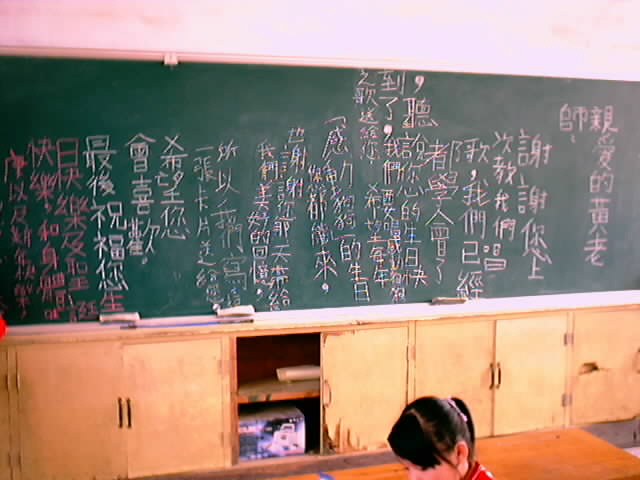 親愛的黃老
師
謝謝您上
次教我們唱
歌，我們已經
都學會了
，聽說您的生日快
到了，我們
之歌送給您，希望每年
「感動狗狗」的生日
您都會來，
也謝謝
我們美好的回憶，
所以我們寫這
一張卡片送給您
希望您
會喜歡。
最後祝福您生
日快樂及聖誕
快樂，和身體
康以及新年快樂